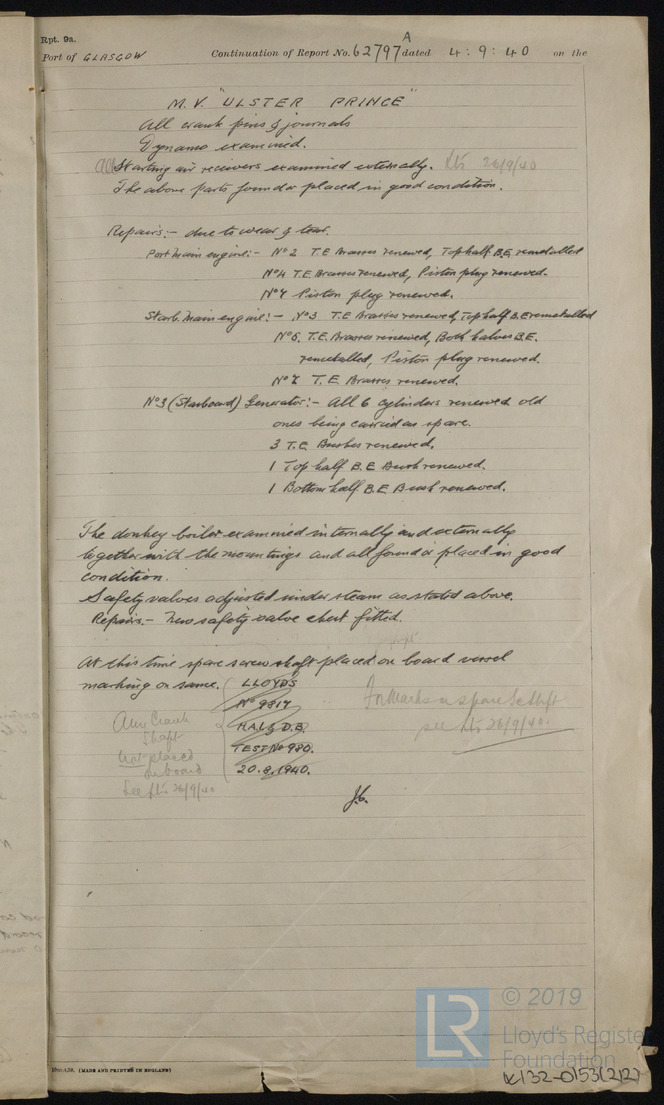 Rpt. 9a.
A
Port of GLASGOW Continuation of Report No. 62797 dated 4:9:40 on the
M.V. "ULSTER PRINCE"
All crank pins & journals
Dynamo examined.
All Starting air receivers examined externally. 26/9/40
The above parts found or placed in good condition.
Repairs:- due to wear & tear.
Port main engine:- No 2 T.E. Brasses renewed, Top half B.E. remetalled
No 4 T.E. Brasses renewed, Piston plug renewed.
No 7 Piston plug renewed.
Starb. main engine:- No 3 T.E. Brasses renewed, Top half B.E. remetalled
No 5. T.E. Brasses renewed, Both halves B.E.
remetalled, Piston plug renewed.
No 7 T.E. Brasses renewed.
No 3 (Starboard) Generator:- All 6 cylinders renewed old
ones being carried as spare.
3 T.E. Bushes renewed.
1 Top half B.E Bush renewed.
1 Bottom half B.E Bush renewed.
The donkey boiler examined internally and externally
together with the mountings and all found or placed in good
condition.
Safety valves adjusted under steam as stated above.
Repairs.- New safety valve chest fitted.
At this time spare screw shaft placed on board vessel
marking on same. LLOYD'S
No 9817
HAL & D.B.
TEST No 980.
20.8.1940.
For Marks on spare
see 26/9/40
Crank
Shaft
not placed
on board
See 26/9/40
© 2019
LR
Lloyd's Register
Foundation
(MADE AND PRINTED IN ENGLAND)
W132-0153(2/2)